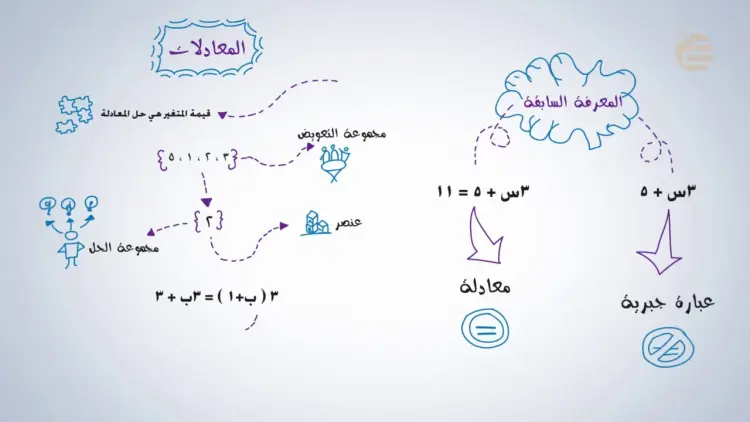 المعرفة السابقة
٣س + ٥
عبارة جبرية
٣س + ٥ = ١١
معادلة
المعادلات
قيمة المتغير هي حل المعادلة
{٣ ، ٢ ، ١ ، ٥}
مجموعة التعويض
{٢}
عنصر
مجموعة الحل
٣ ( ب+١ ) = ٣ب + ٣